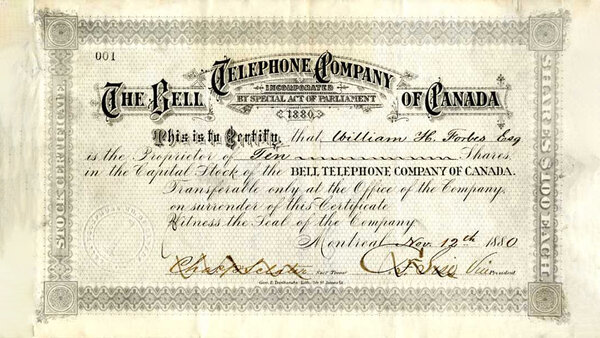 001
TELEPHONE COMPANY
INCORPORATED
BY SPECIAL ACT OF PARLIAMENT
1880
THE BELL
OF CANADA
This is to Certify, that William H. Forbes Esq
is the Proprietor of Ten Shares
in the Capital Stock of the BELL TELEPHONE COMPANY OF CANADA.
Transferable only at the Office of the Company
on surrender of this Certificate
Witness the Seal of the Company
Montreal Nov. 12th 1880
Vice President
STOCK CERTIFICATE
SHARES $100 EACH